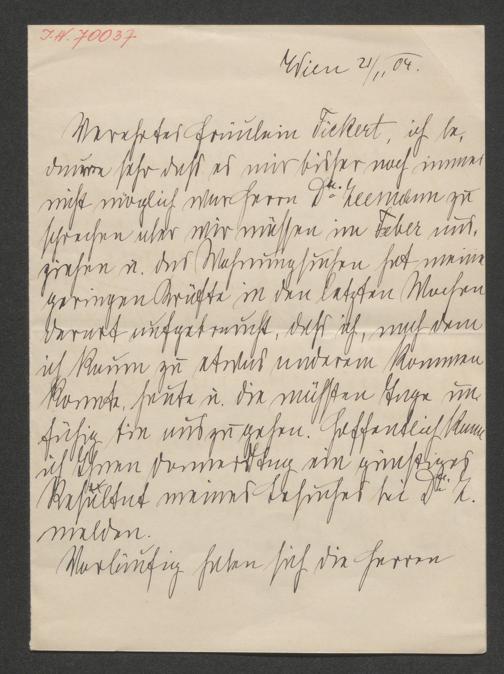 I.N. 70037
Wien 21/II 04.
Verehrtes Fräulein Tickert, ich be-
dauere sehr dass es mir bisher noch immer
nicht möglich war Herrn Dr. Zeemann zu
sprechen aber wir müssen im Feber aus-
ziehen u. das Wohnungsuchen hat meine
geringen Kräfte in den letzten Wochen
derart aufgebraucht, dass ich, nach dem
ich kaum zu etwas anderem kommen
konnte, heute u. die nächsten Tage un-
fähig bin auszugehen. Hoffentlich kann
ich Ihnen Donnerstag ein günstiges
Resultat meines Besuches bei Dr. Z.
melden.
Vorläufig haben sich die Herren